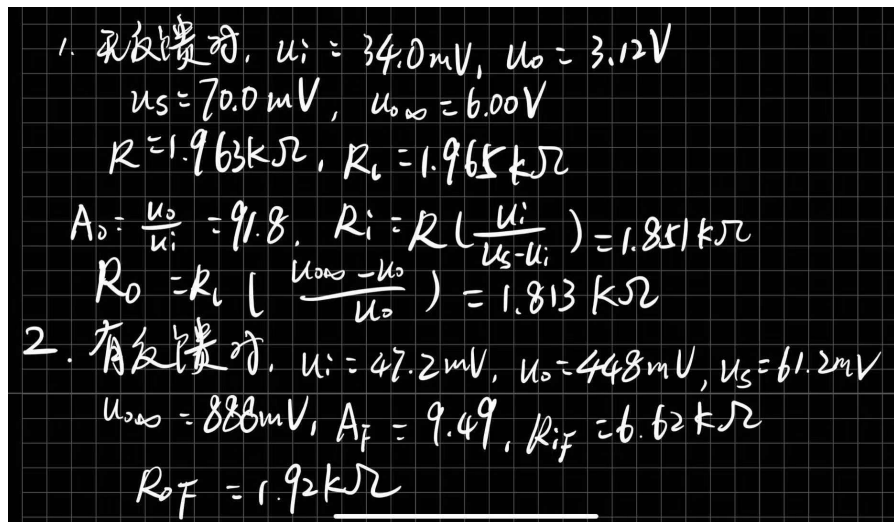 1. 无反馈时, ui = 34.0mV, uo = 3.12V
us = 70.0mV, uo∞ = 6.00V
R = 1.963kΩ, RL = 1.965kΩ
Ao = uo/ui = 91.8. Ri = R(ui/(us-ui)) = 1.851kΩ
Ro = RL((uo∞-uo)/uo) = 1.813KΩ
2. 有反馈时, ui = 47.2mV, uo = 448mV, us = 61.2mV
uo∞ = 888mV, AF = 9.49, RiF = 6.62kΩ
RoF = 1.92kΩ